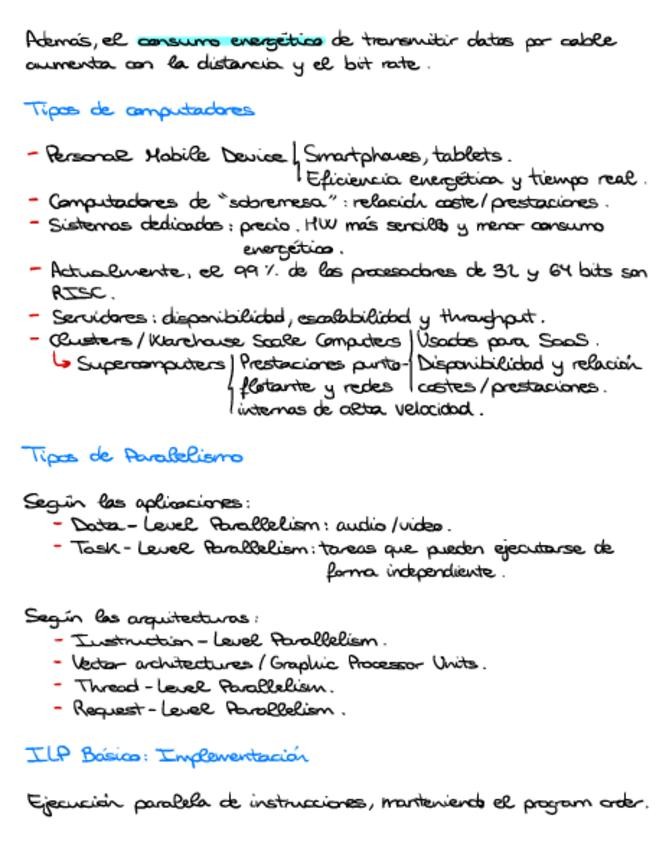 Además, el consumo energético de transmitir datos por cable
aumenta con la distancia y el bit rate.
Tipos de computadores
- Personal Mobile Device | Smartphones, tablets.
Eficiencia energética y tiempo real.
- Computadores de "sobremesa": relación coste/prestaciones.
- Sistemas dedicados: precio. HW más sencillo y menor consumo
energético.
- Actualmente, el 99% de los procesadores de 32 y 64 bits son
RISC.
- Servidores: disponibilidad, escalabilidad y throughput.
- Clusters / Warehouse Scale Computers | Usados para SaaS.
↳ Supercomputers | Prestaciones punto- | Disponibilidad y relación
flotante y redes | costes/prestaciones.
internas de alta velocidad.
Tipos de Paralelismo
Según las aplicaciones:
- Data-Level Parallelism: audio/video.
- Task-Level Parallelism: tareas que pueden ejecutarse de
forma independiente.
Según las arquitecturas:
- Instruction-Level Parallelism.
- Vector architectures / Graphic Processor Units.
- Thread-Level Parallelism.
- Request-Level Parallelism.
ILP Básico: Implementación
Ejecución paralela de instrucciones, manteniendo el program order.